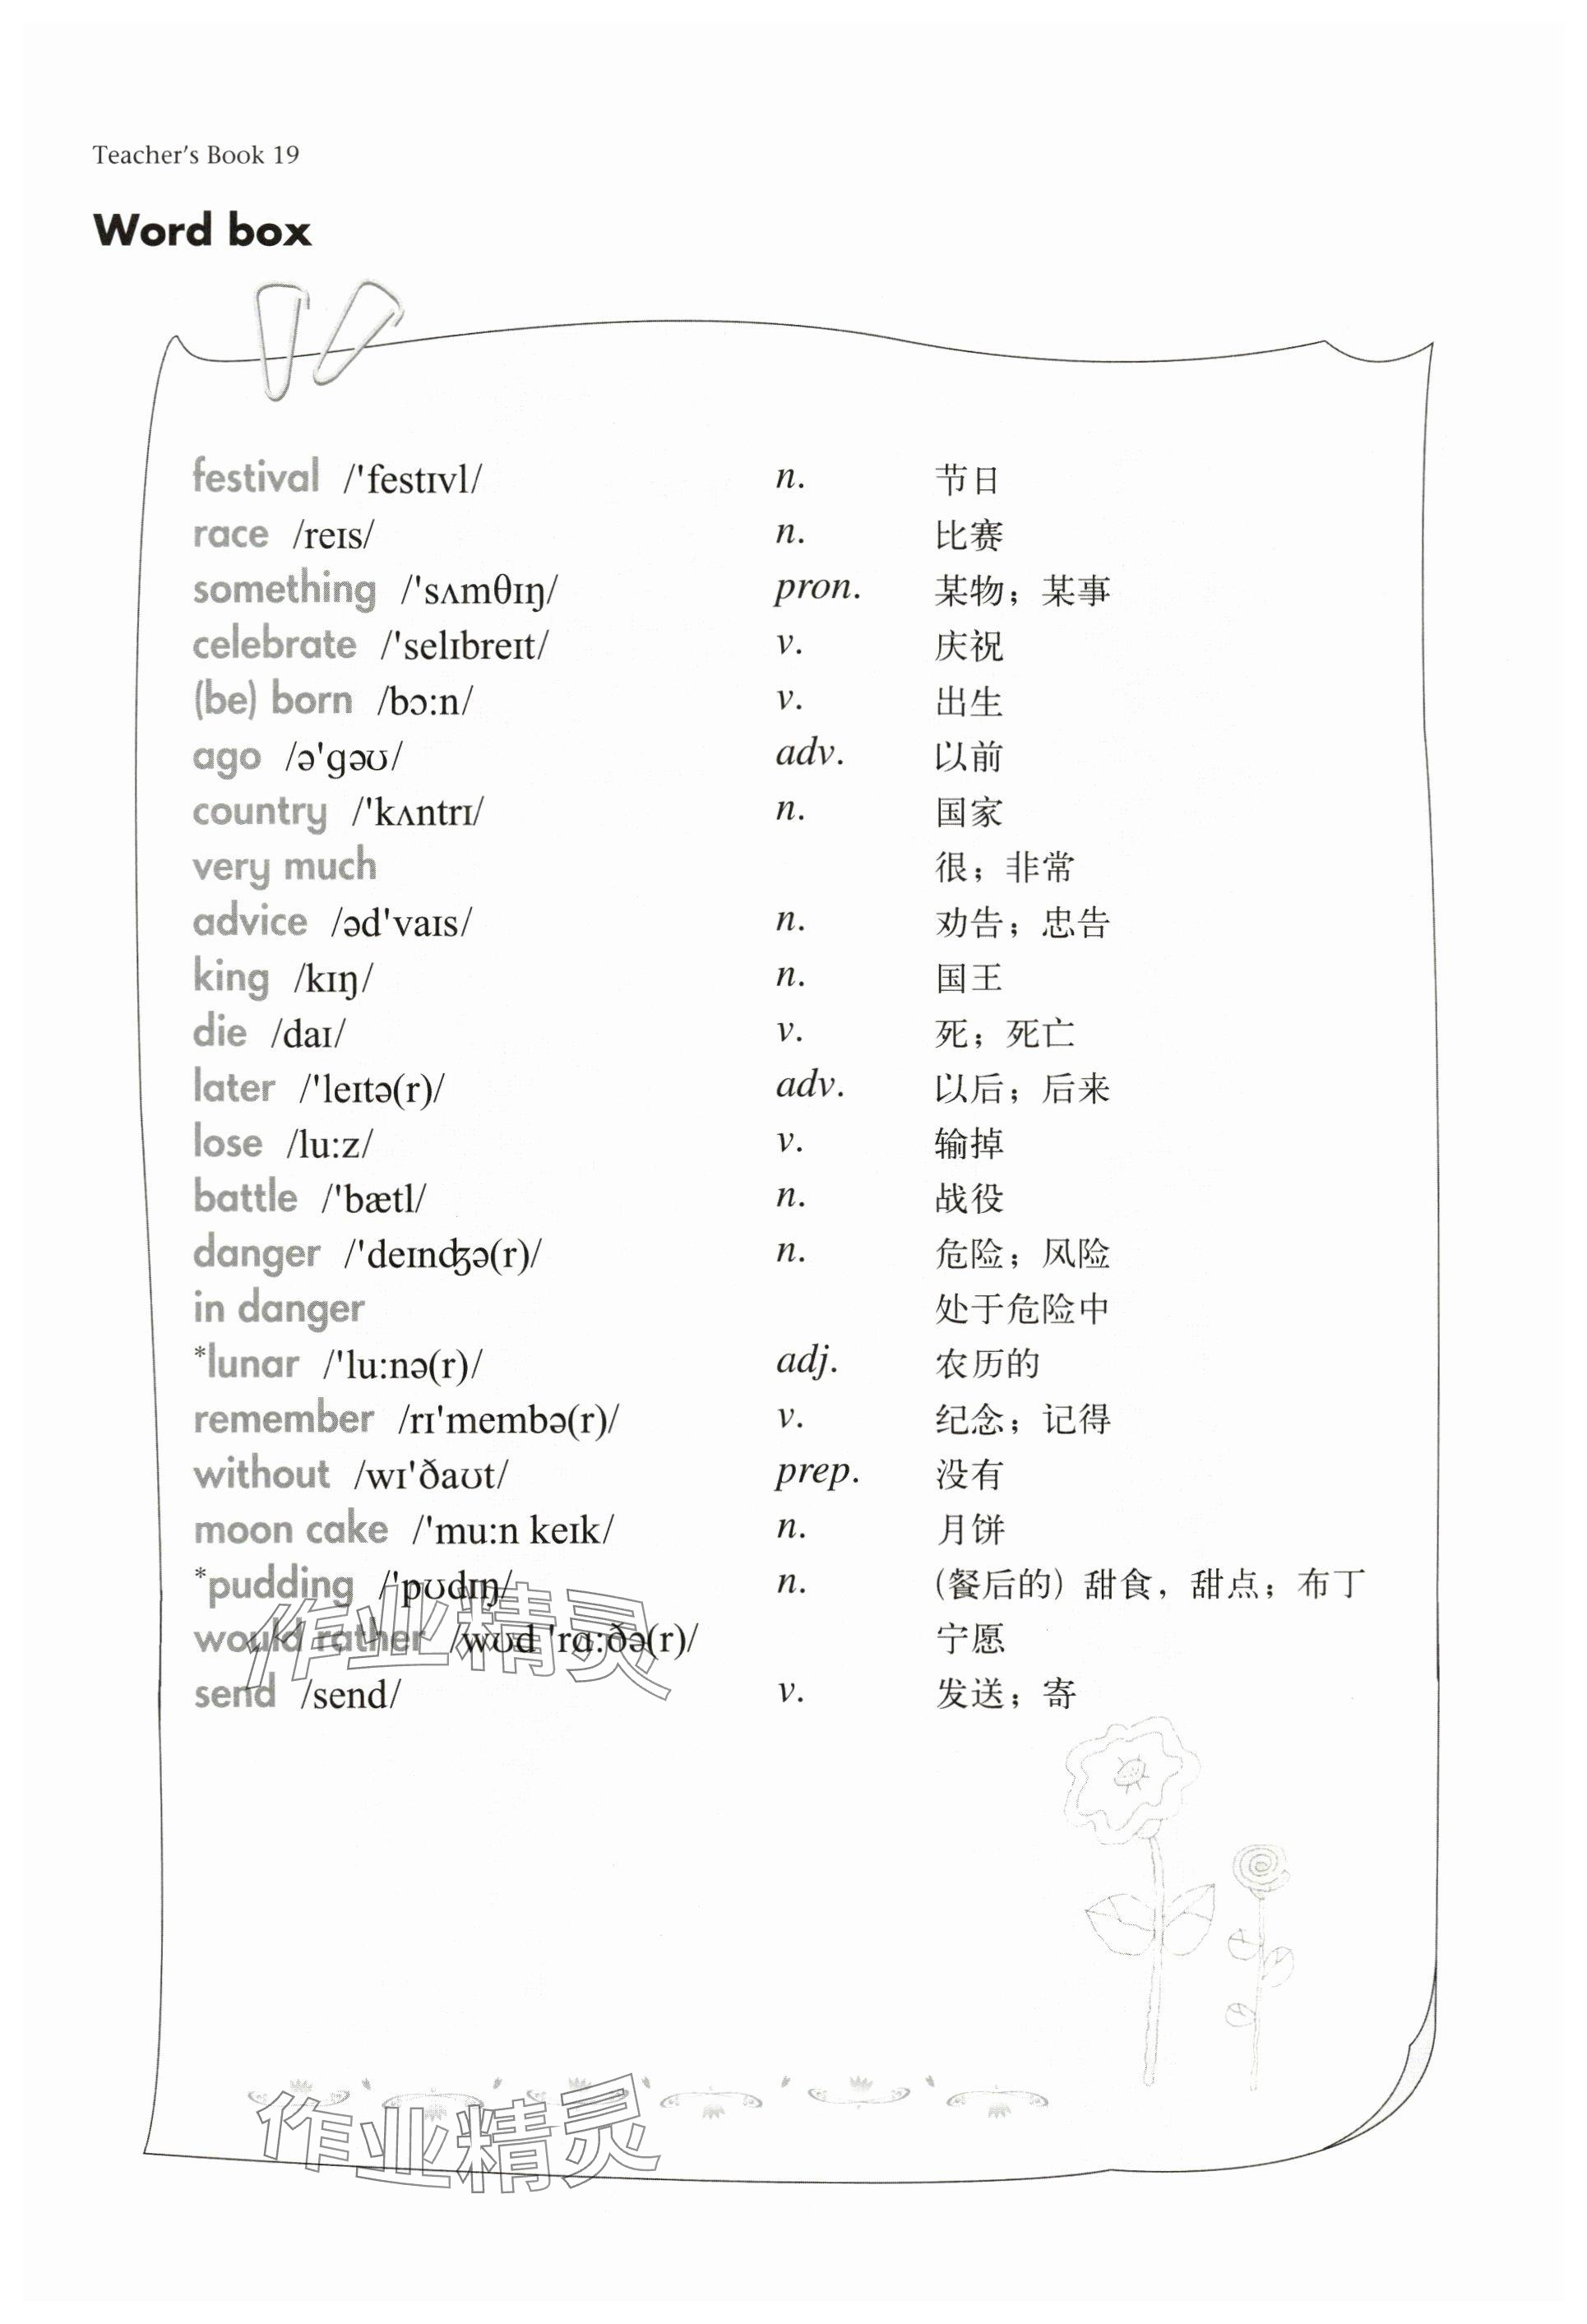 Teacher's Book 19
Word box
festival /'festɪvl/ n. 节日
race /reɪs/ n. 比赛
something /'sʌmθɪŋ/ pron. 某物；某事
celebrate /'selɪbreɪt/ v. 庆祝
(be) born /bɔ:n/ v. 出生
ago /ə'gəʊ/ adv. 以前
country /'kʌntrɪ/ n. 国家
very much 很；非常
advice /əd'vaɪs/ n. 劝告；忠告
king /kɪŋ/ n. 国王
die /daɪ/ v. 死；死亡
later /'leɪtə(r)/ adv. 以后；后来
lose /lu:z/ v. 输掉
battle /'bætl/ n. 战役
danger /'deɪnʤə(r)/ n. 危险；风险
in danger 处于危险中
*lunar /'lu:nə(r)/ adj. 农历的
remember /rɪ'membə(r)/ v. 纪念；记得
without /wɪ'ðaʊt/ prep. 没有
moon cake /'mu:n keɪk/ n. 月饼
*pudding /'pʊdɪŋ/ n. (餐后的) 甜食，甜点；布丁
would rather /wʊd 'rɑ:ðə(r)/ 宁愿
作业精灵
send /send/ v. 发送；寄
作业精灵